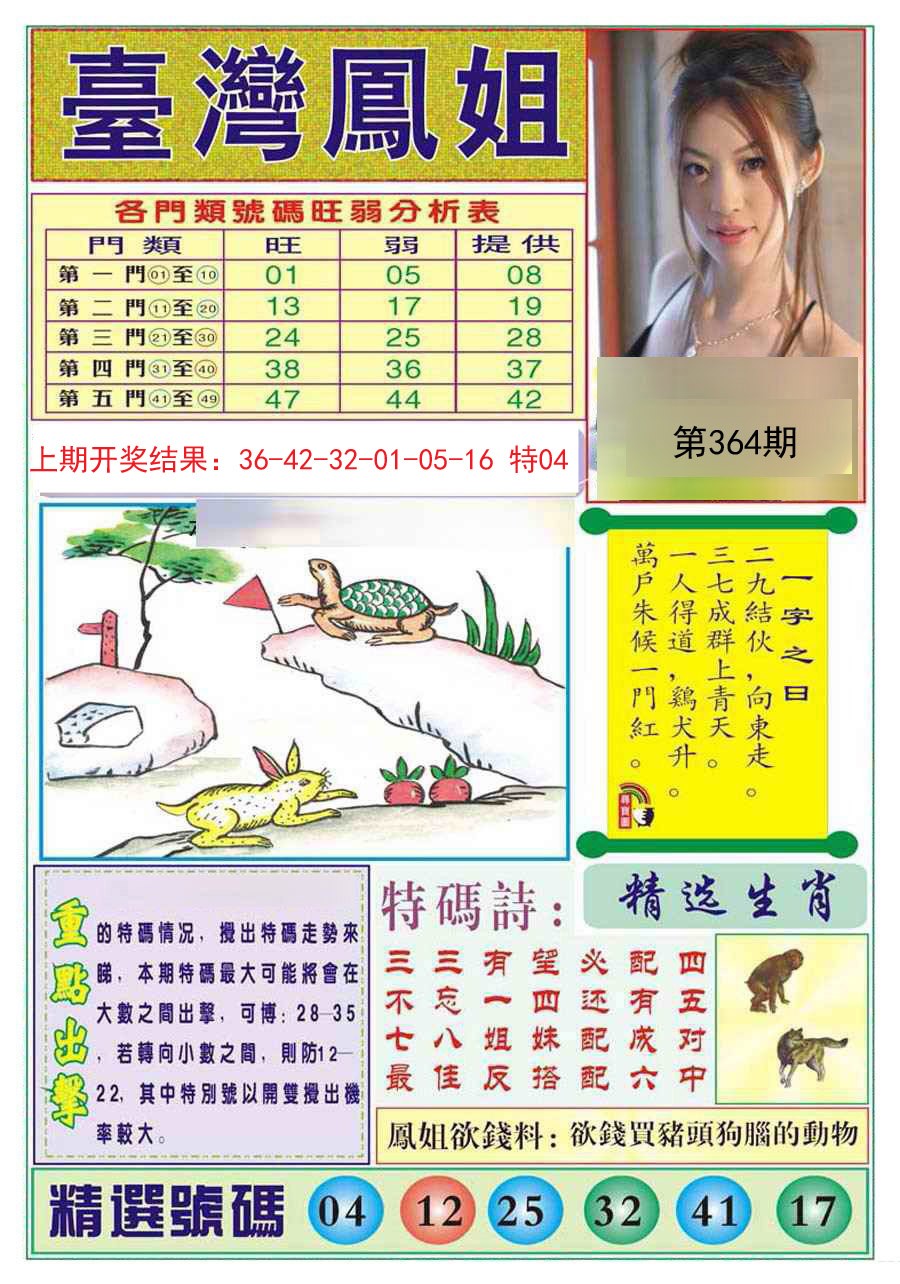 臺灣鳳姐
各門類號碼旺弱分析表
門類 旺 弱 提供
第一門01至10 01 05 08
第二門11至20 13 17 19
第三門21至30 24 25 28
第四門31至40 38 36 37
第五門41至49 47 44 42
上期开奖结果：36-42-32-01-05-16 特04
第364期
一字之日
二九結伙，向東走。
三七成群上青天。
一人得道，鷄犬升。
萬戶朱候一門紅。
尋寶圖
重點出擊
的特碼情况，攪出特碼走勢來
睇，本期特碼最大可能將會在
大數之間出擊，可博：28—35
，若轉向小數之間，則防12—
22，其中特別號以開雙攪出機
率較大。
特碼詩：
三三有望必配四
不忘一四还有五
七八姐妹配成对
最佳反搭配六中
精选生肖
鳳姐欲錢料：欲錢買豬頭狗腦的動物
精選號碼 04 12 25 32 41 17